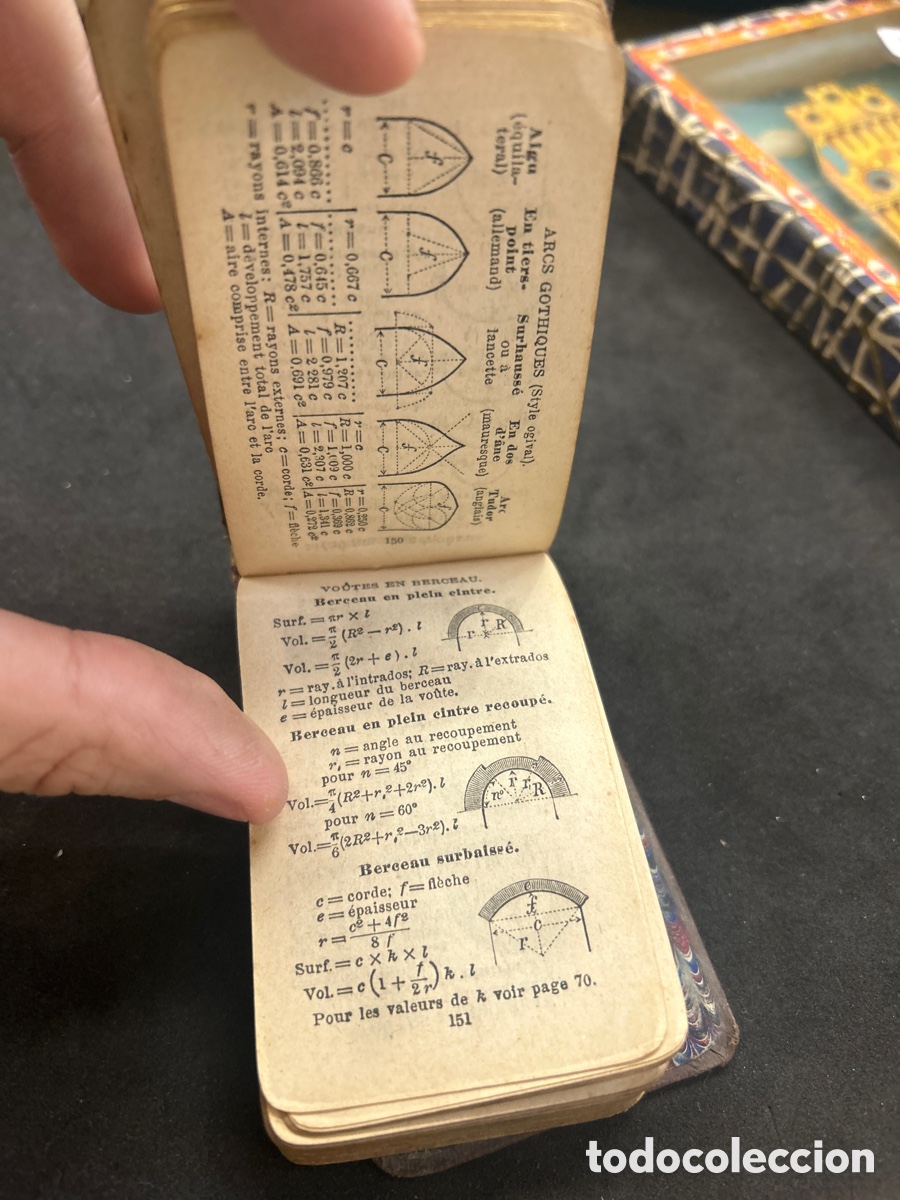 ARCS GOTHIQUES (Style ogival).
Aigu (équila- teral)
En tiers- point (allemand)
Surhaussé ou à lancette
En dos d'âne (mauresque)
Arc Tudor (anglais)
f
C
f
C
f
C
f
C
f
C
r = c
f = 0,866 c
l = 2,094 c
A = 0,614 c²
r = 0,667 c
f = 0,645 c
l = 1,757 c
A = 0,478 c²
R = 1,207 c
f = 0,979 c
l = 2 281 c
A = 0.691 c²
r = c
R = 1,000 c
f = 1,109 c
l = 2,307 c
A = 0,631 c²
r = 0,250 c
R = 0,862 c
f = 0,369 c
l = 1,341 c
A = 0,272 c²
r = rayons internes: R = rayons externes; c = corde; f = flèche
l = développement total de l'arc
A = aire comprise entre l'arc et la corde.
150
VOÛTES EN BERCEAU.
Berceau en plein cintre.
Surf. = πr × l
Vol. = π/2 (R² — r²) . l
Vol. = π/2 (2r + e) . l
e r r R
r = ray. à l'intrados; R = ray. à l'extrados
l = longueur du berceau
e = épaisseur de la voûte.
Berceau en plein cintre recoupé.
n = angle au recoupement
r, = rayon au recoupement
pour n = 45°
Vol. = π/4 (R²+r,²+2r²). l
pour n = 60°
Vol. = π/6 (2R²+r,²—3r²). l
n° r r, R
Berceau surbaissé.
c = corde; f = flèche
e = épaisseur
r = c² + 4f² / 8 f
Surf. = c × k × l
Vol. = c (1 + f/2r) k . l
e
f
C
r
Pour les valeurs de k voir page 70.
151
todocoleccion